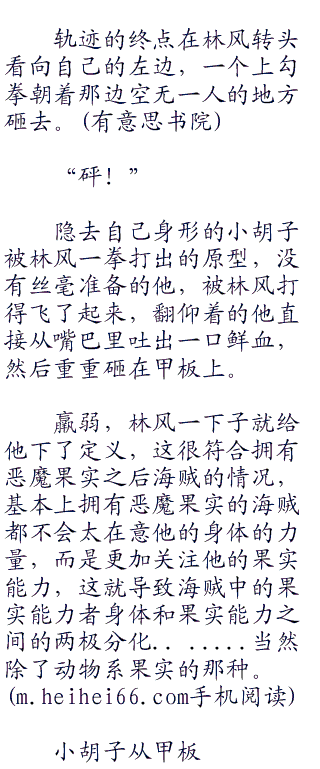 轨迹的终点在林风转头
看向自己的左边，一个上勾
拳朝着那边空无一人的地方
砸去。(有意思书院)
“砰！”
隐去自己身形的小胡子
被林风一拳打出的原型，没
有丝毫准备的他，被林风打
得飞了起来，翻仰着的他直
接从嘴巴里吐出一口鲜血，
然后重重砸在甲板上。
羸弱，林风一下子就给
他下了定义，这很符合拥有
恶魔果实之后海贼的情况，
基本上拥有恶魔果实的海贼
都不会太在意他的身体的力
量，而是更加关注他的果实
能力，这就导致海贼中的果
实能力者身体和果实能力之
间的两极分化.. .....当然
除了动物系果实的那种。
(m.heihei66.com手机阅读)
小胡子从甲板